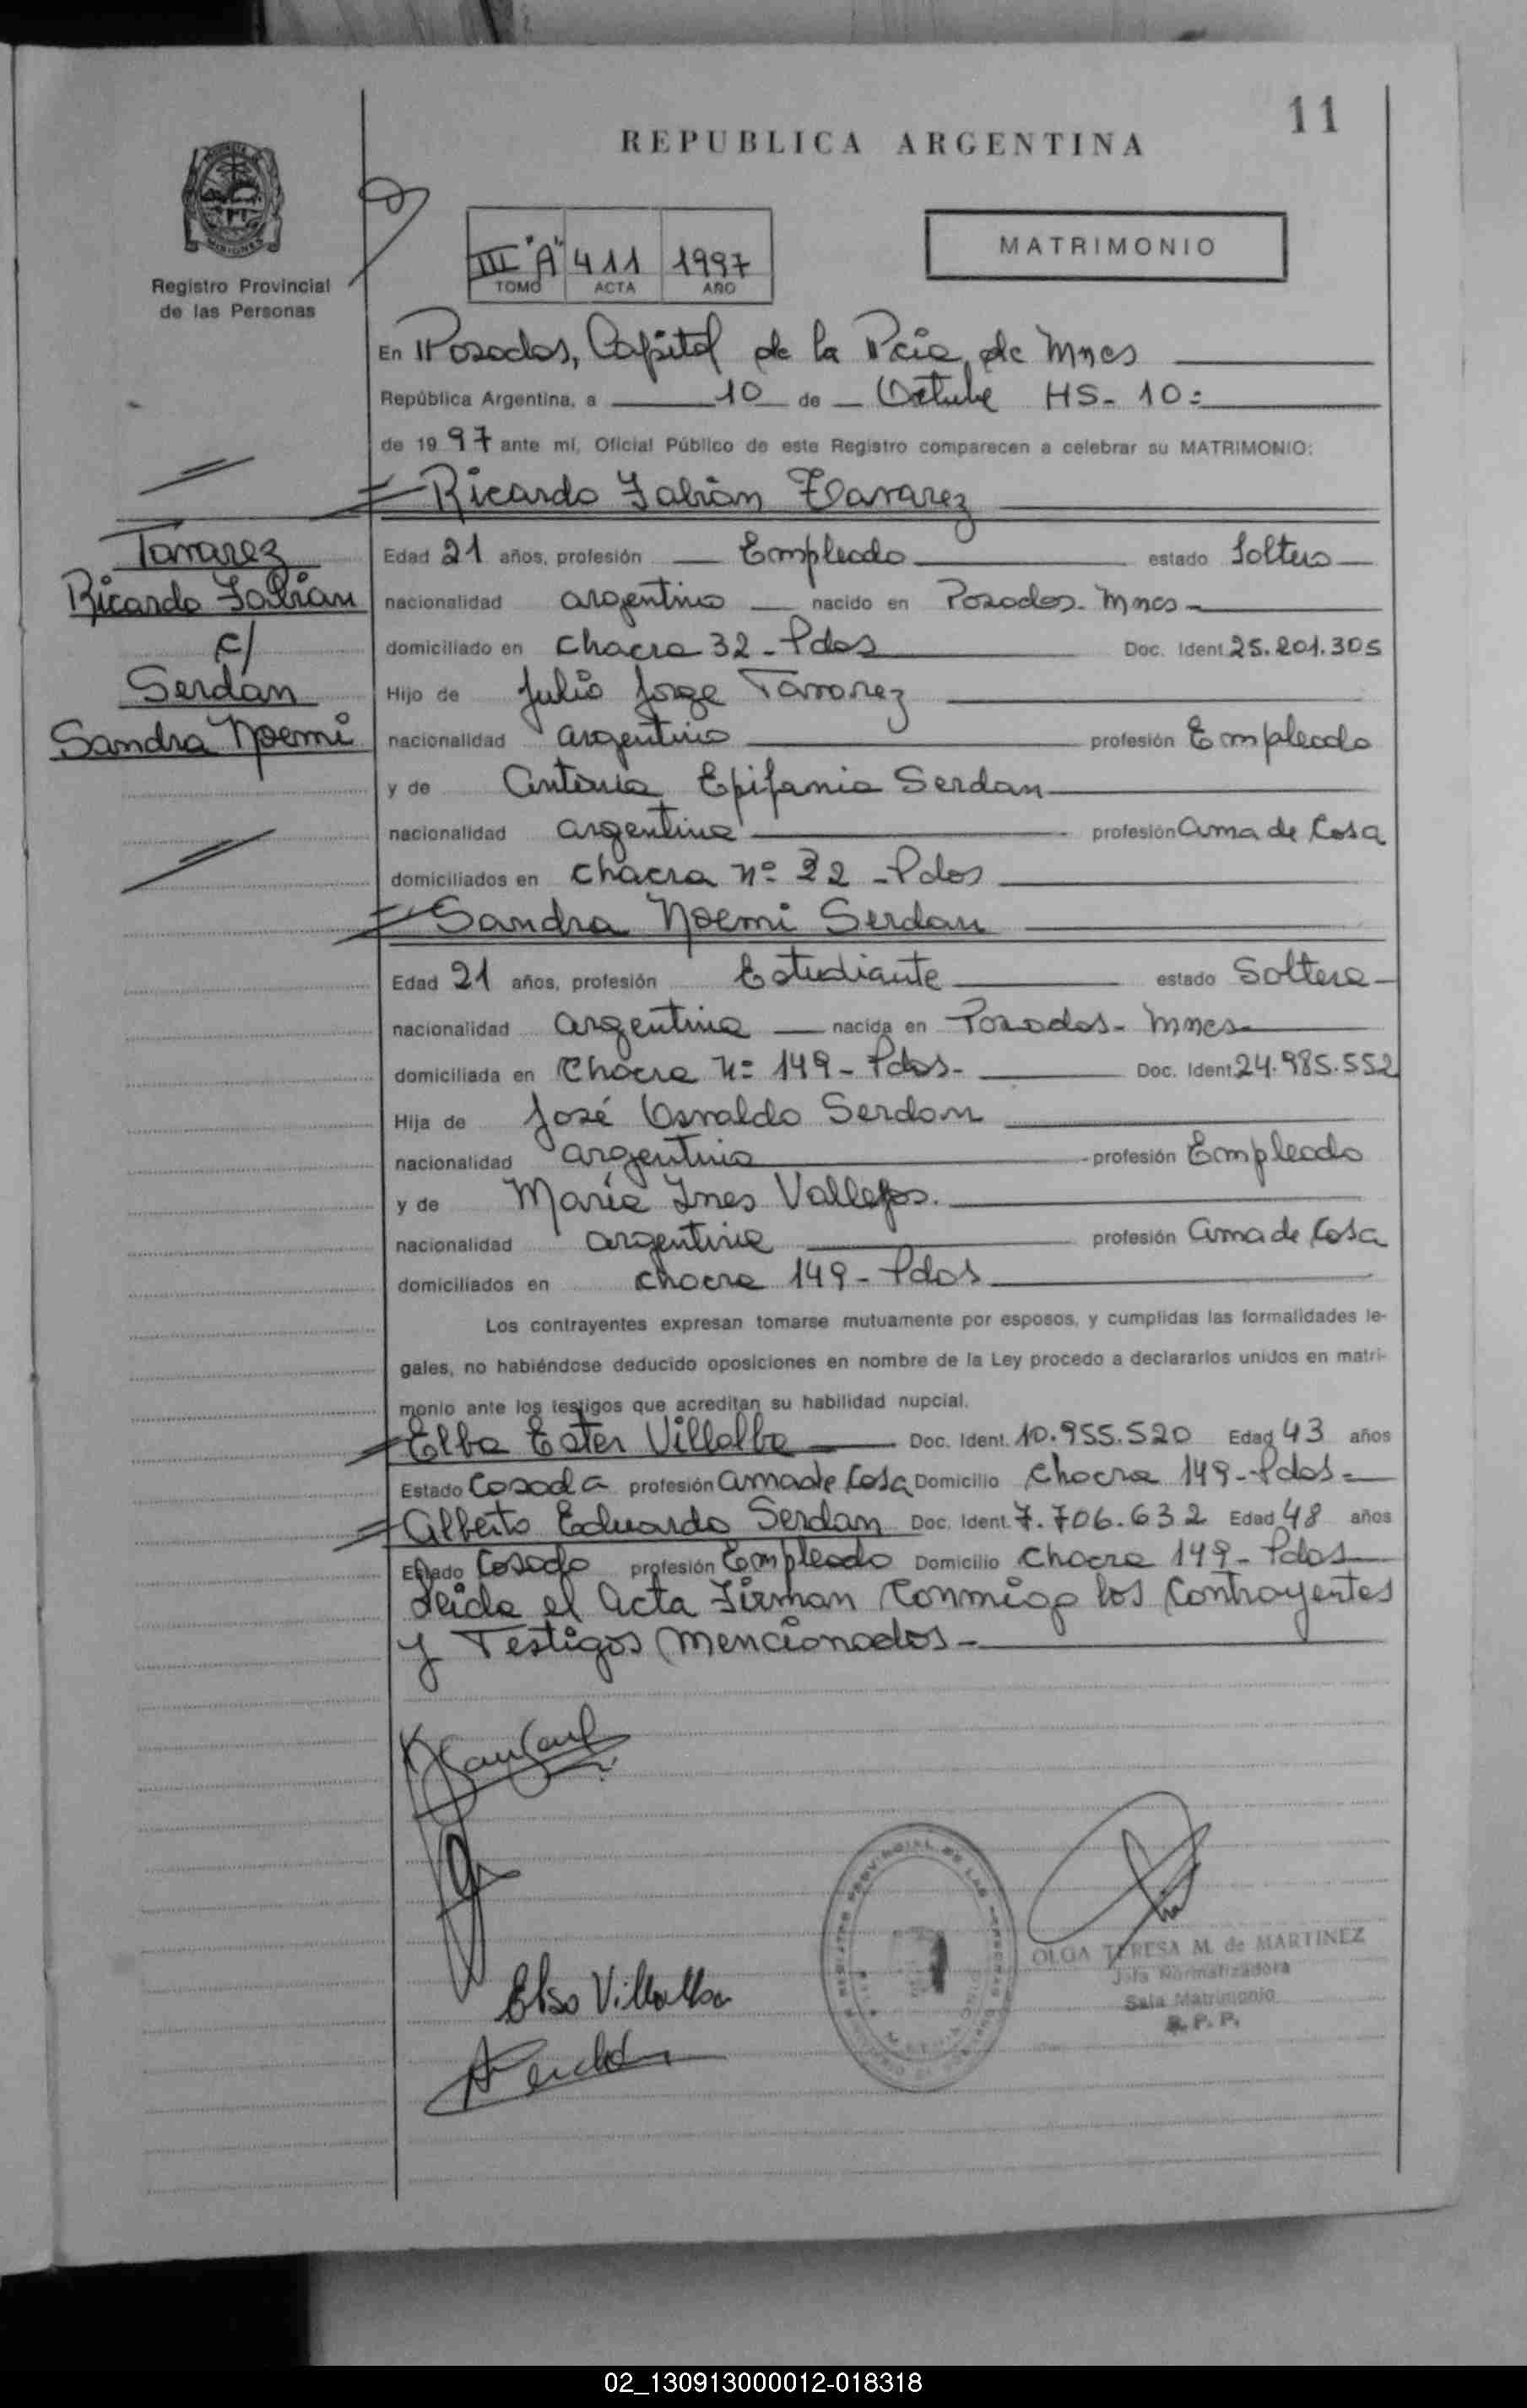 11
REPUBLICA ARGENTINA
MATRIMONIO
III "A" 411 1997
TOMO ACTA AÑO
Registro Provincial
de las Personas
En Posadas, Capital de la Pcia, de Mnes
República Argentina, a 10 de Octube HS- 10:
de 1997 ante mí, Oficial Público de este Registro comparecen a celebrar su MATRIMONIO:
Ricardo Fabián Tavarez
Tavarez
Ricardo Fabian
c/
Serdán
Sandra Noemi
Edad 21 años, profesión Empleado estado Soltero
nacionalidad argentino nacido en Posadas- Mnes-
domiciliado en Chacra 32 - Pdas Doc. Ident. 25.201.305
Hijo de Julio Jorge Tavarez
nacionalidad argentino profesión Empleado
y de Antonia Epifania Serdan
nacionalidad argentina profesión Ama de Casa
domiciliados en Chacra Nº 32 - Pdas
Sandra Noemi Serdan
Edad 21 años, profesión Estudiante estado Soltera-
nacionalidad argentina nacida en Posadas- Mnes-
domiciliada en Chacra Nº 149 - Pdas- Doc. Ident. 24.985.552
Hija de José Osvaldo Serdan
nacionalidad argentino profesión Empleado
y de María Ines Vallejos.
nacionalidad argentina profesión Ama de Casa
domiciliados en chacra 149 - Pdas
Los contrayentes expresan tomarse mutuamente por esposos, y cumplidas las formalidades le-
gales, no habiéndose deducido oposiciones en nombre de la Ley procedo a declararlos unidos en matri-
monio ante los testigos que acreditan su habilidad nupcial.
Elba Ester Villalba Doc. Ident. 10.955.520 Edad 43 años
Estado Casada profesión Ama de Casa Domicilio Chacra 149 - Pdas-
Alberto Eduardo Serdan Doc. Ident. 7.706.632 Edad 48 años
Estado Casado profesión Empleado Domicilio Chacra 149 - Pdas
Leida el Acta Firman Conmigo los Contrayentes
y Testigos Mencionados-
Elsa Villalba
OLGA TERESA M. de MARTINEZ
Jefa Normalizadora
Sala Matrimonio
R. P. P.
02_130913000012-018318